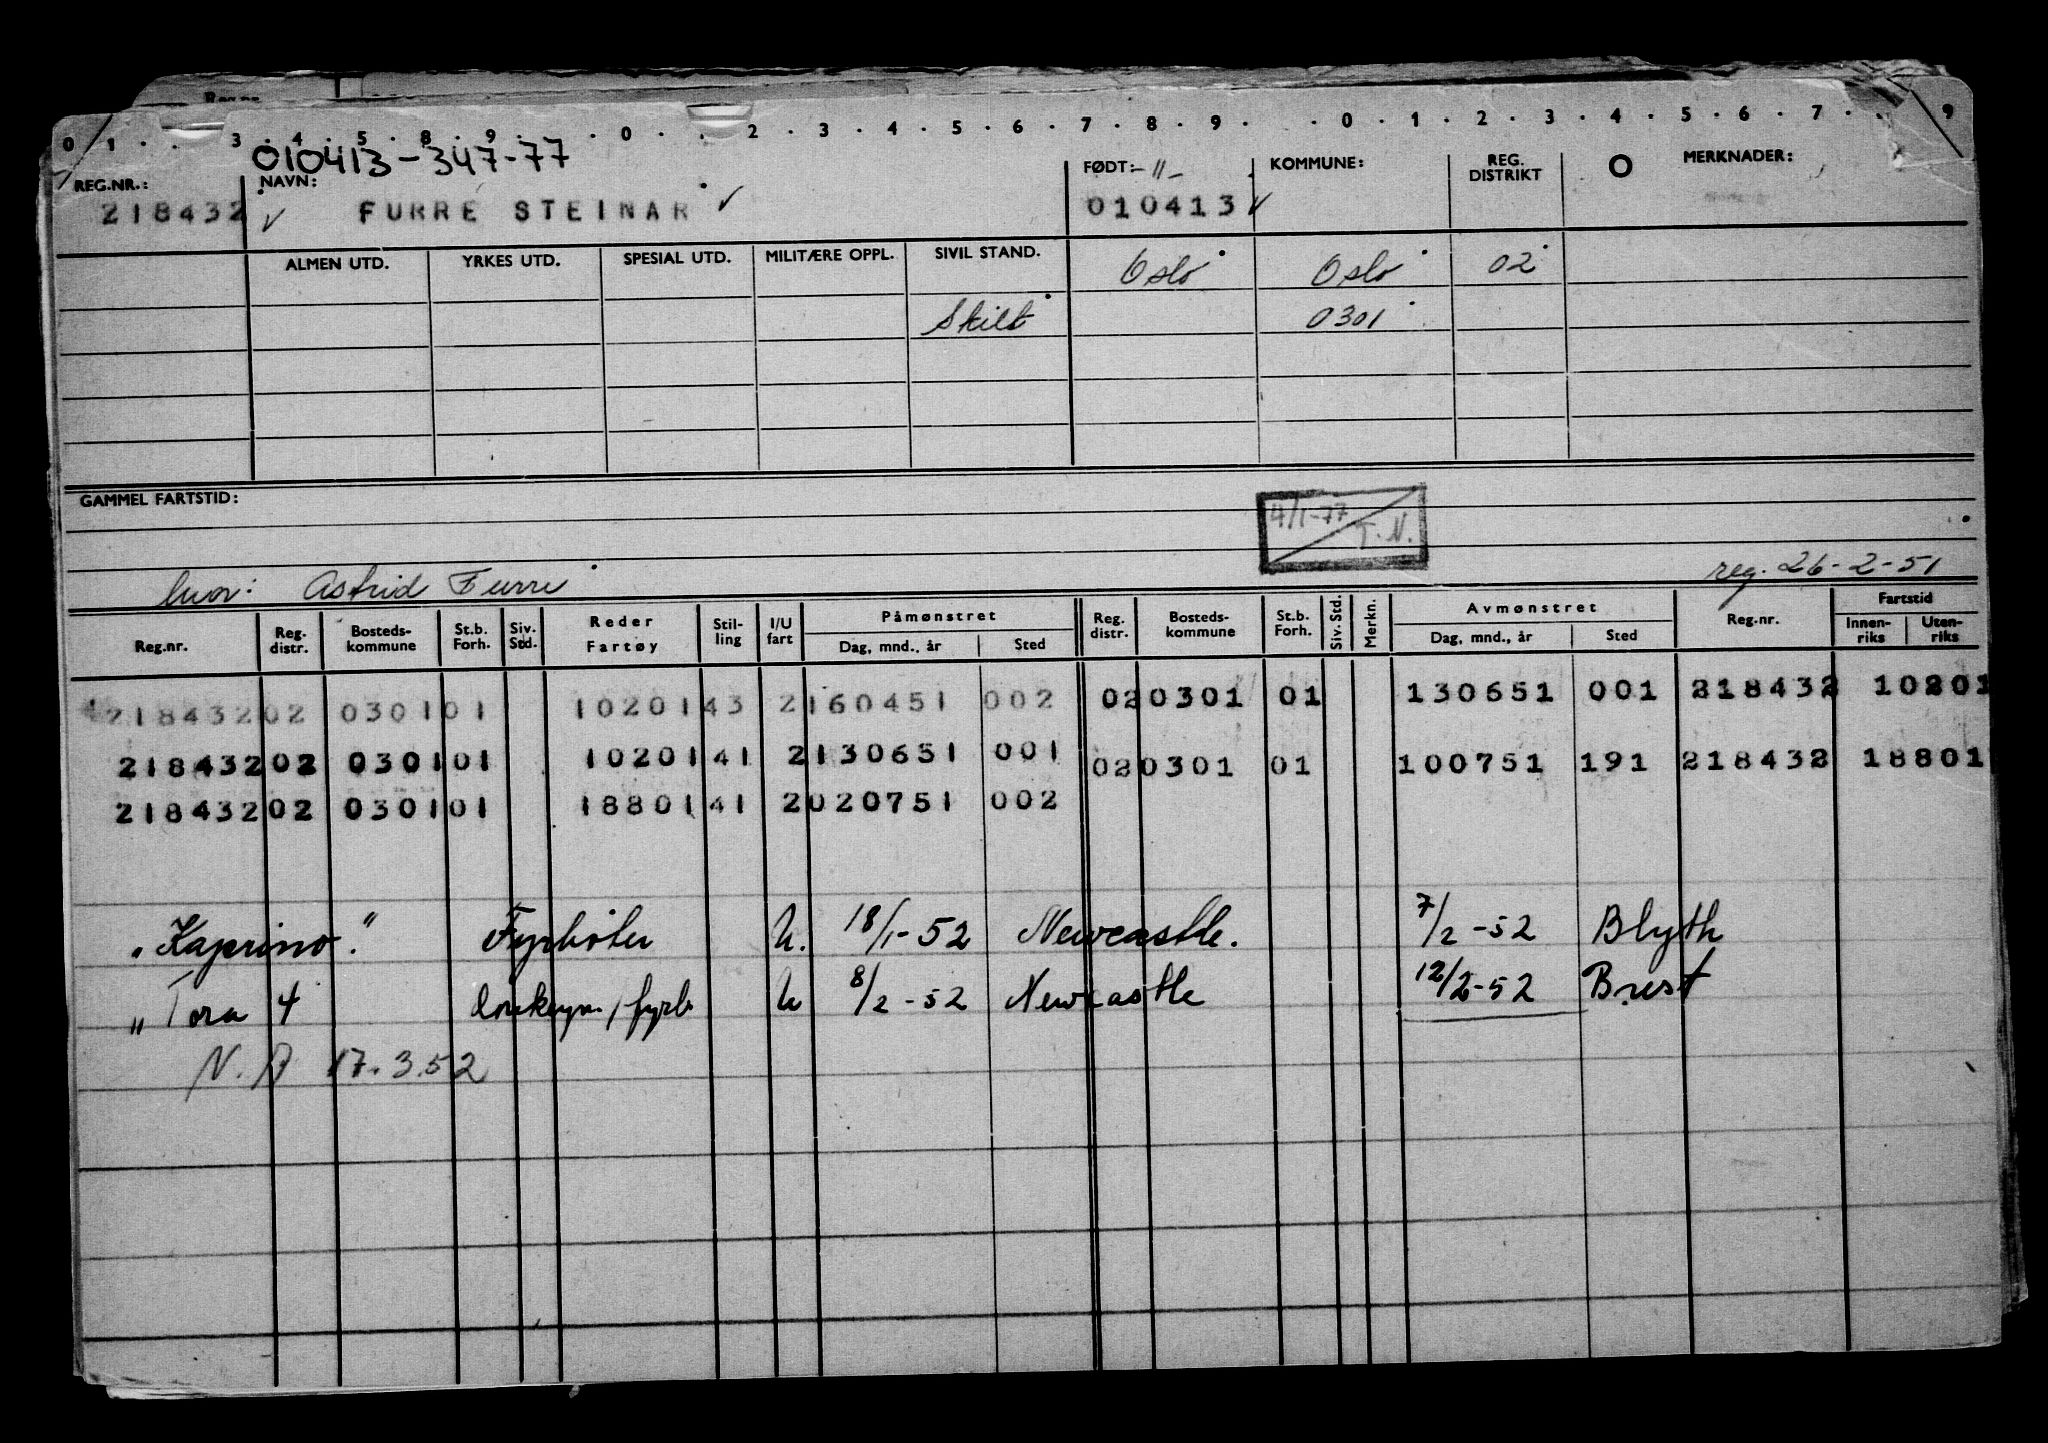 Reg.nr.
0 1 . . 3 . 4 . 5 . 8 . 9 . . 0 . . 2 . 3 . 4 . 5 . 6 . 7 . 8 . 9 . . 0 . 1 . 2 . 3 . 4 . 5 . 6 . 7 . . 9
010413-347-77
REG.NR.: NAVN: FØDT: -"- KOMMUNE: REG. DISTRIKT O MERKNADER:
218432 √ FURRE STEINAR √ 010413 √
ALMEN UTD. YRKES UTD. SPESIAL UTD. MILITÆRE OPPL. SIVIL STAND. Oslo Oslo 02
Skilt 0301
GAMMEL FARTSTID:
4/1-77 T.N.
mor: Astrid Furre reg. 26-2-51
Reg.nr. Reg. distr. Bosteds-kommune St.b. Forh. Siv. Std. Reder Fartøy Stil-ling I/U fart Påmønstret Dag, mnd., år Sted Reg. distr. Bosteds-kommune St.b. Forh. Siv. Std. Merkn. Avmønstret Dag, mnd., år Sted Reg.nr. Fartstid Innen-riks Uten-riks
218432 02 0301 01 10201 43 2 160451 002 02 0301 01 130651 001 218432 10201
218432 02 0301 01 10201 41 2 130651 001 02 0301 01 100751 191 218432 18801
218432 02 0301 01 18801 41 2 020751 002
"Kaprino." Fyrbøter U. 18/1-52 Newcastle. 7/2-52 Blyth
"Tora 4 fyrb U 8/2-52 Newcastle 12/2-52 Brest
N.A 17.3.52